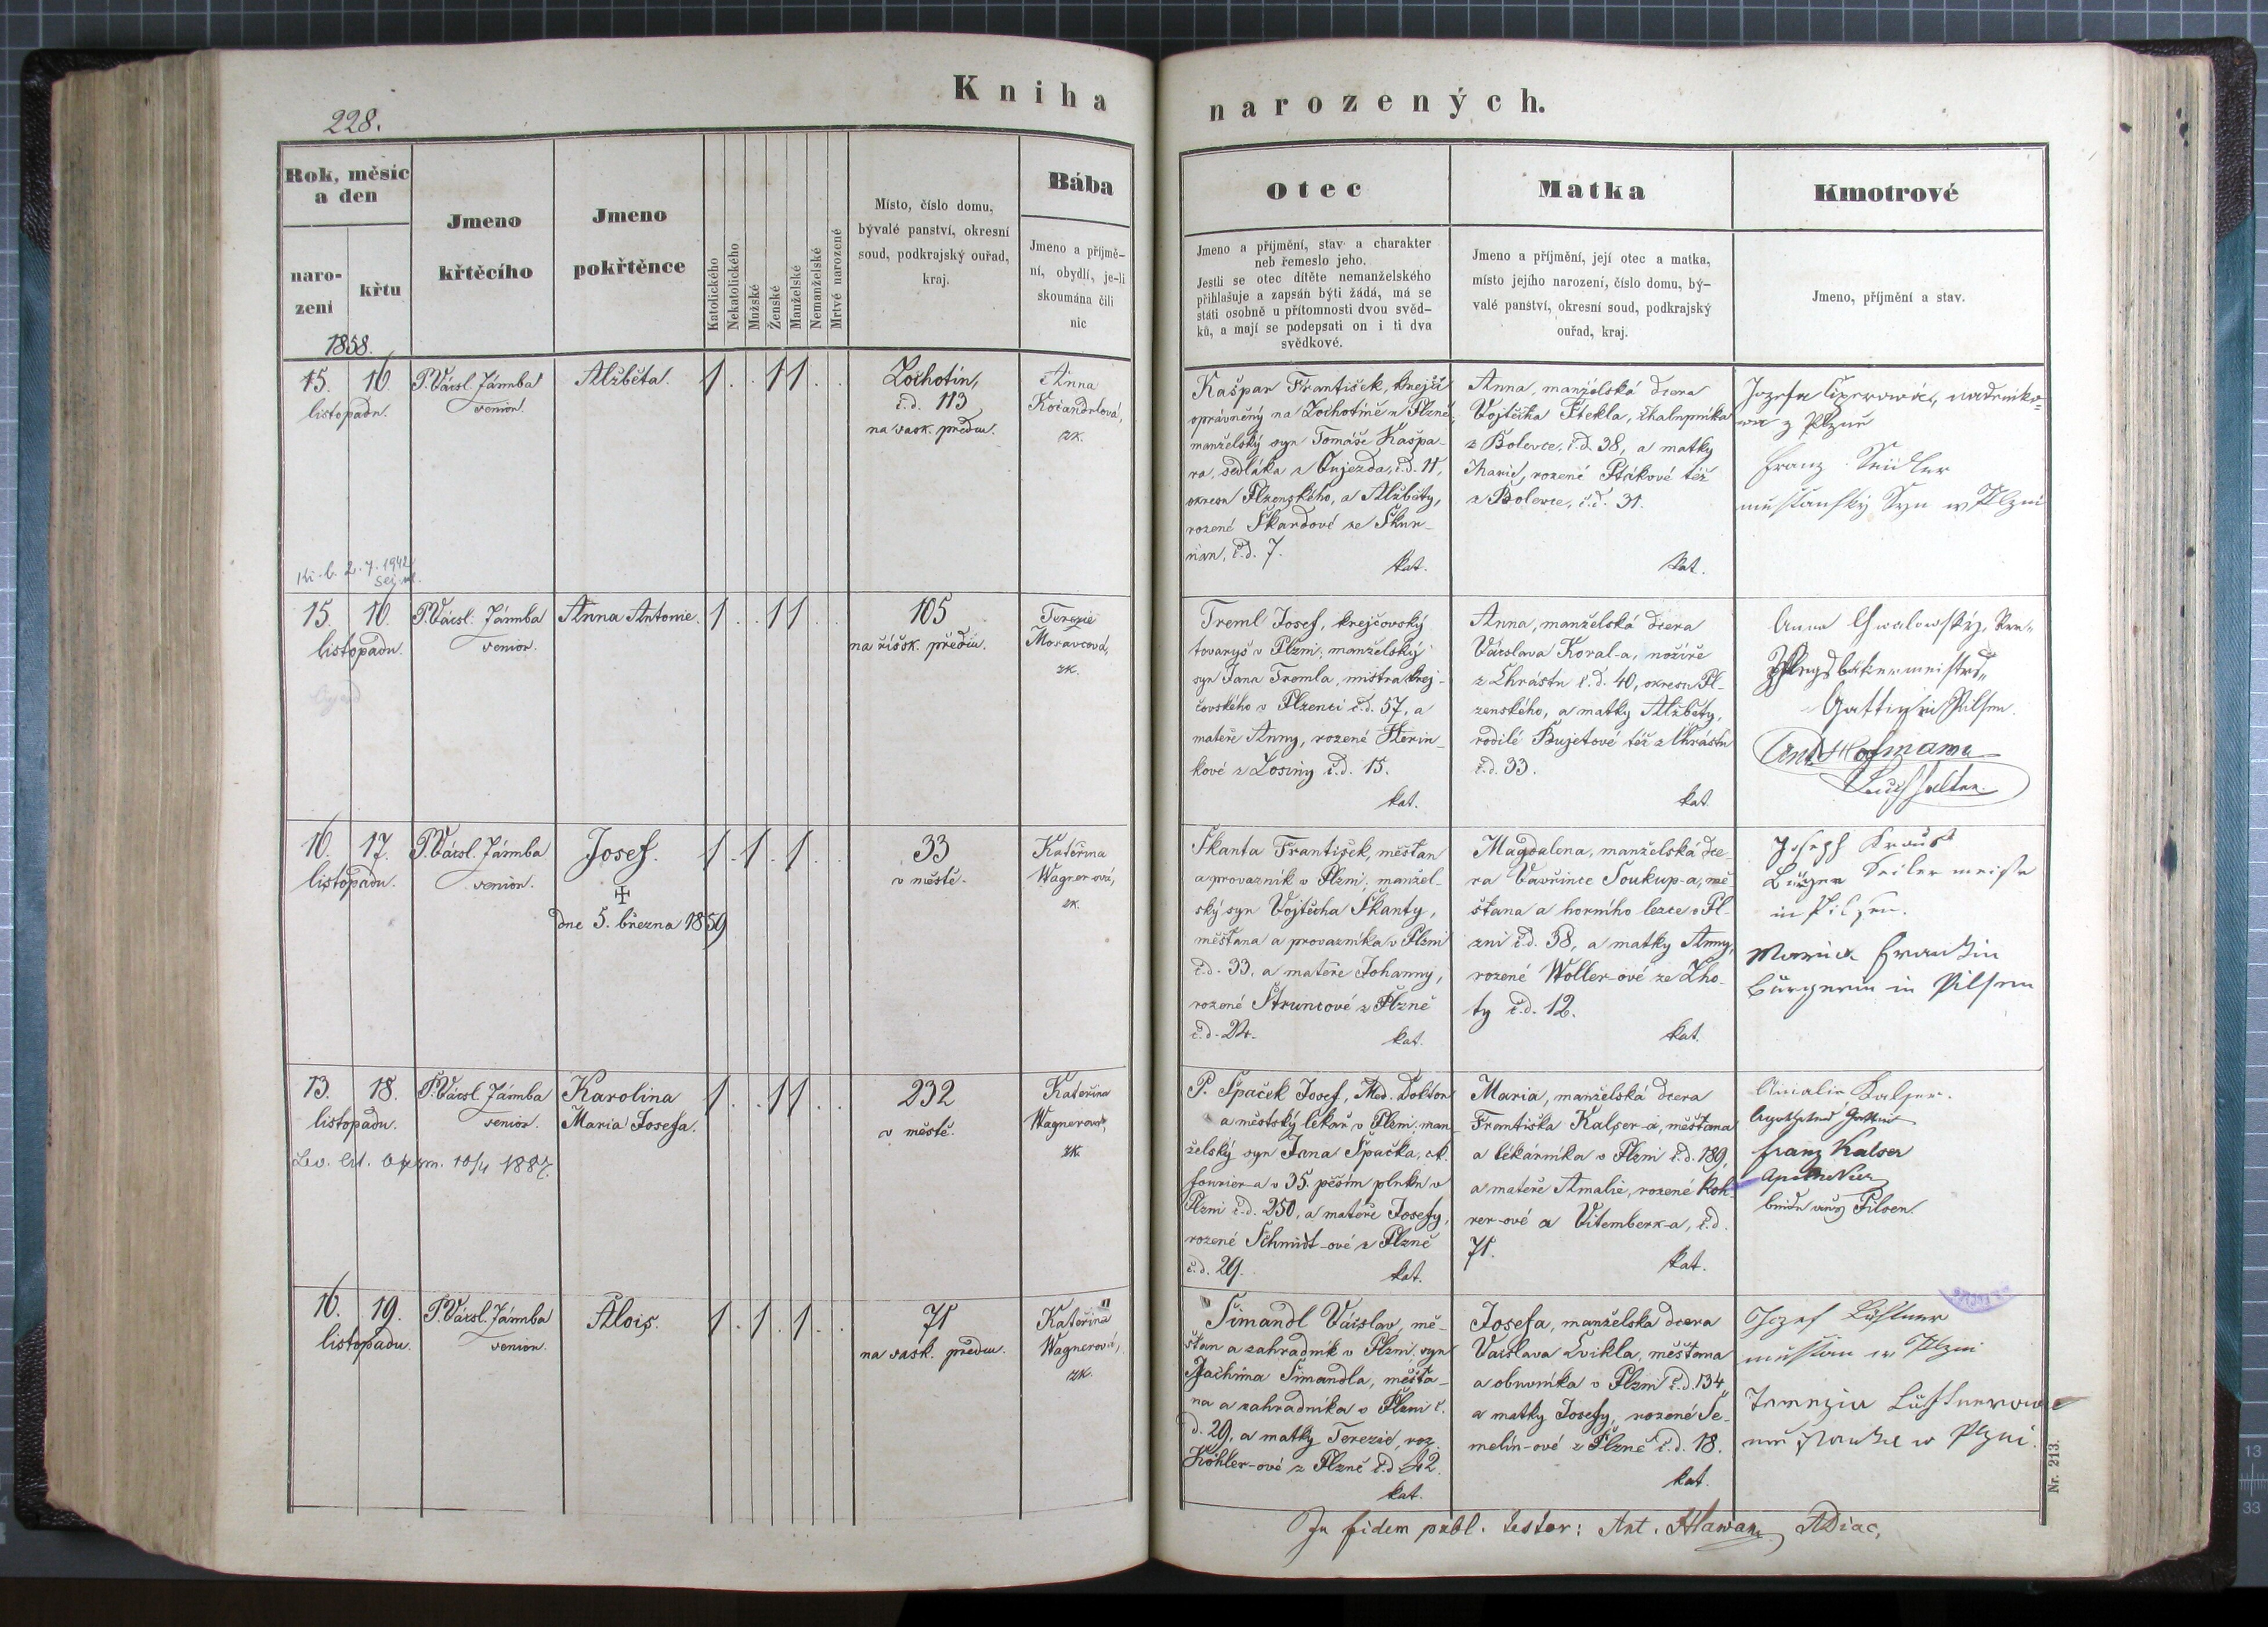 228.
Kniha narozených.
Rok, měsíc
a den
naro-
zení
křtu
1858.
Jmeno
křtěcího
Jmeno
pokřtěnce
Katolického
Nekatolického
Mužské
Ženské
Manželské
Nemanželské
Mrtvé narozené
Místo, číslo domu,
bývalé panství, okresní
soud, podkrajský ouřad,
kraj.
Bába
Jmeno a příjmě-
ní, obydlí, je-li
skoumána čili
nic
Otec
Jmeno a příjmění, stav a charakter
neb řemeslo jeho.
Jestli se otec dítěte nemanželského
přihlašuje a zapsán býti žádá, má se
státi osobně u přítomnosti dvou svěd-
ků, a mají se podepsati on i ti dva
svědkové.
Matka
Jmeno a příjmění, její otec a matka,
místo jejího narození, číslo domu, bý-
valé panství, okresní soud, podkrajský
ouřad, kraj.
Kmotrové
Jmeno, příjmění a stav.
15. 16.
listopadu.
P. Václ. Jámba
senior.
Alžběta.
1 . . 1 1 . .
Lochotín,
č.d. 113
na sask. předm.
Anna
Kočandrlová,
zk.
Kašpar František, krejčí
oprávněný na Lochotíně u Plzně,
manželský syn Tomáše Kašpa-
ra, sedláka z Oujezda, č.d. 11,
okresu Plzenského, a Alžběty,
rozené Škardové ze Skur-
ňan, č.d. 7.
kat.
Anna, manželská dcera
Vojtěcha Štekla, chalupníka
z Bolevce, č.d. 38, a matky
Marie, rozené Ptákové též
z Bolevce, č.d. 31.
kat.
z Plzně
Franz Seidler
Syn w Plzni
2. 7. 1942
15. 16.
listopadu.
P. Václ. Jámba
senior.
Anna Antonie.
1 . . 1 1 . .
105
na říšsk. předm.
Terezie
Moravcová,
zk.
Treml Josef, krejčovský
tovaryš v Plzni, manželský
syn Jana Tremla, mistra krej-
čovského v Plzenci č.d. 57, a
mateře Anny, rozené
kové z Losiny č.d. 15.
kat.
Anna, manželská dcera
Václava Koval-a, nožíře
z Chrástu č.d. 40, okresu Pl-
zenského, a matky Alžběty,
rodilé Bujetové též z Chrástu
č.d. 33.
kat.
Anna
Gattin in Pilsen.
Ant. Hofmann
Buchhalter.
16. 17.
listopadu.
P. Václ. Jámba
senior.
Josef.
✠
dne 5. března 1859
1 . 1 . 1 . .
33
v městě.
Kateřina
Wagnerová,
zk.
Škanta František, měšťan
a provazník v Plzni, manžel-
ský syn Vojtěcha Škanty,
měšťana a provazníka v Plzni
č.d. 33, a mateře Johanny,
rozené Štruncové z Plzně
č.d. 24.
kat.
Magdalena, manželská dce-
ra Vavřince Soukup-a, mě-
šťana a horního lezce v Pl-
zni č.d. 38, a matky Anny,
rozené Woller-ové ze Lho-
ty č.d. 12.
kat.
Joseph Kraus
Bürger Seilermeister
in Pilsen.
Maria
Bürgerin in Pilsen
13. 18.
listopadu.
P. Václ. Jámba
senior.
Karolina
Maria Josefa.
1 . . 1 1 . .
232
v městě.
Kateřina
Wagnerová,
zk.
10/4 1887.
P. Špaček Josef, Med. Doktor
a městský lékař v Plzni, man-
želský syn Jana Špačka,
fourier-a v 35. pěším pluku v
Plzni č.d. 250, a mateře Josefy,
rozené Schmidt-ové z Plzně
č.d. 29.
kat.
Maria, manželská dcera
Františka Kalser-a, měšťana
a lékárníka v Plzni č.d. 189,
a mateře Amalie, rozené Roh-
rer-ové z Vitemberk-a, č.d.
71.
kat.
Amalie Kalser.
Apothekers Gattin
Franz Kalser
Apotheker
beide aus Pilsen.
16. 19.
listopadu.
P. Václ. Jámba
senior.
Alois.
1 . 1 . 1 . .
71
na sask. předm.
Kateřina
Wagnerová,
zk.
Šimandl Václav, mě-
šťan a zahradník v Plzni, syn
Jáchima Šimandla, měšťa-
na a zahradníka v Plzni č.
d. 29, a matky Terezie, roz.
Köhler-ové z Plzně č.d. 42.
kat.
Josefa, manželská dcera
Václava Cvikla, měšťana
a obuvníka v Plzni č.d. 134
a matky Josefy, rozené Se-
melín-ové z Plzně č.d. 18.
kat.
Jozef
w Plzni
w Plzni.
Nr. 213.
In fidem publ. testor: Ant. Hlawan, ADiac.